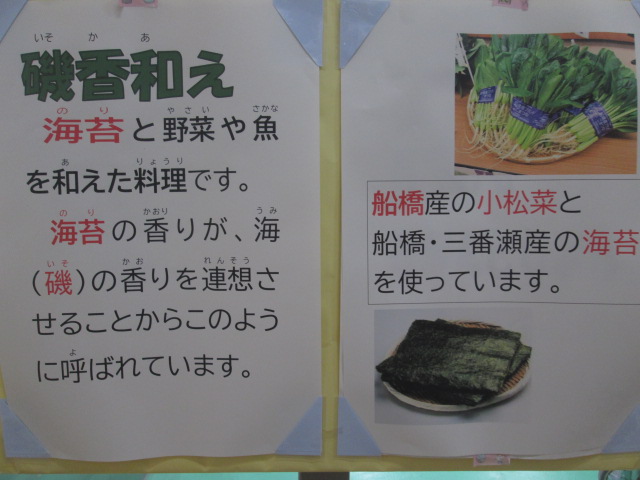 いそ か あ
磯香和え
のり やさい さかな
海苔と野菜や魚
あ りょうり
を和えた料理です。
のり かおり うみ
海苔の香りが、海
いそ かお れんそう
(磯)の香りを連想さ
せることからこのよう
よ
に呼ばれています。
船橋産の小松菜と
船橋・三番瀬産の海苔
を使っています。